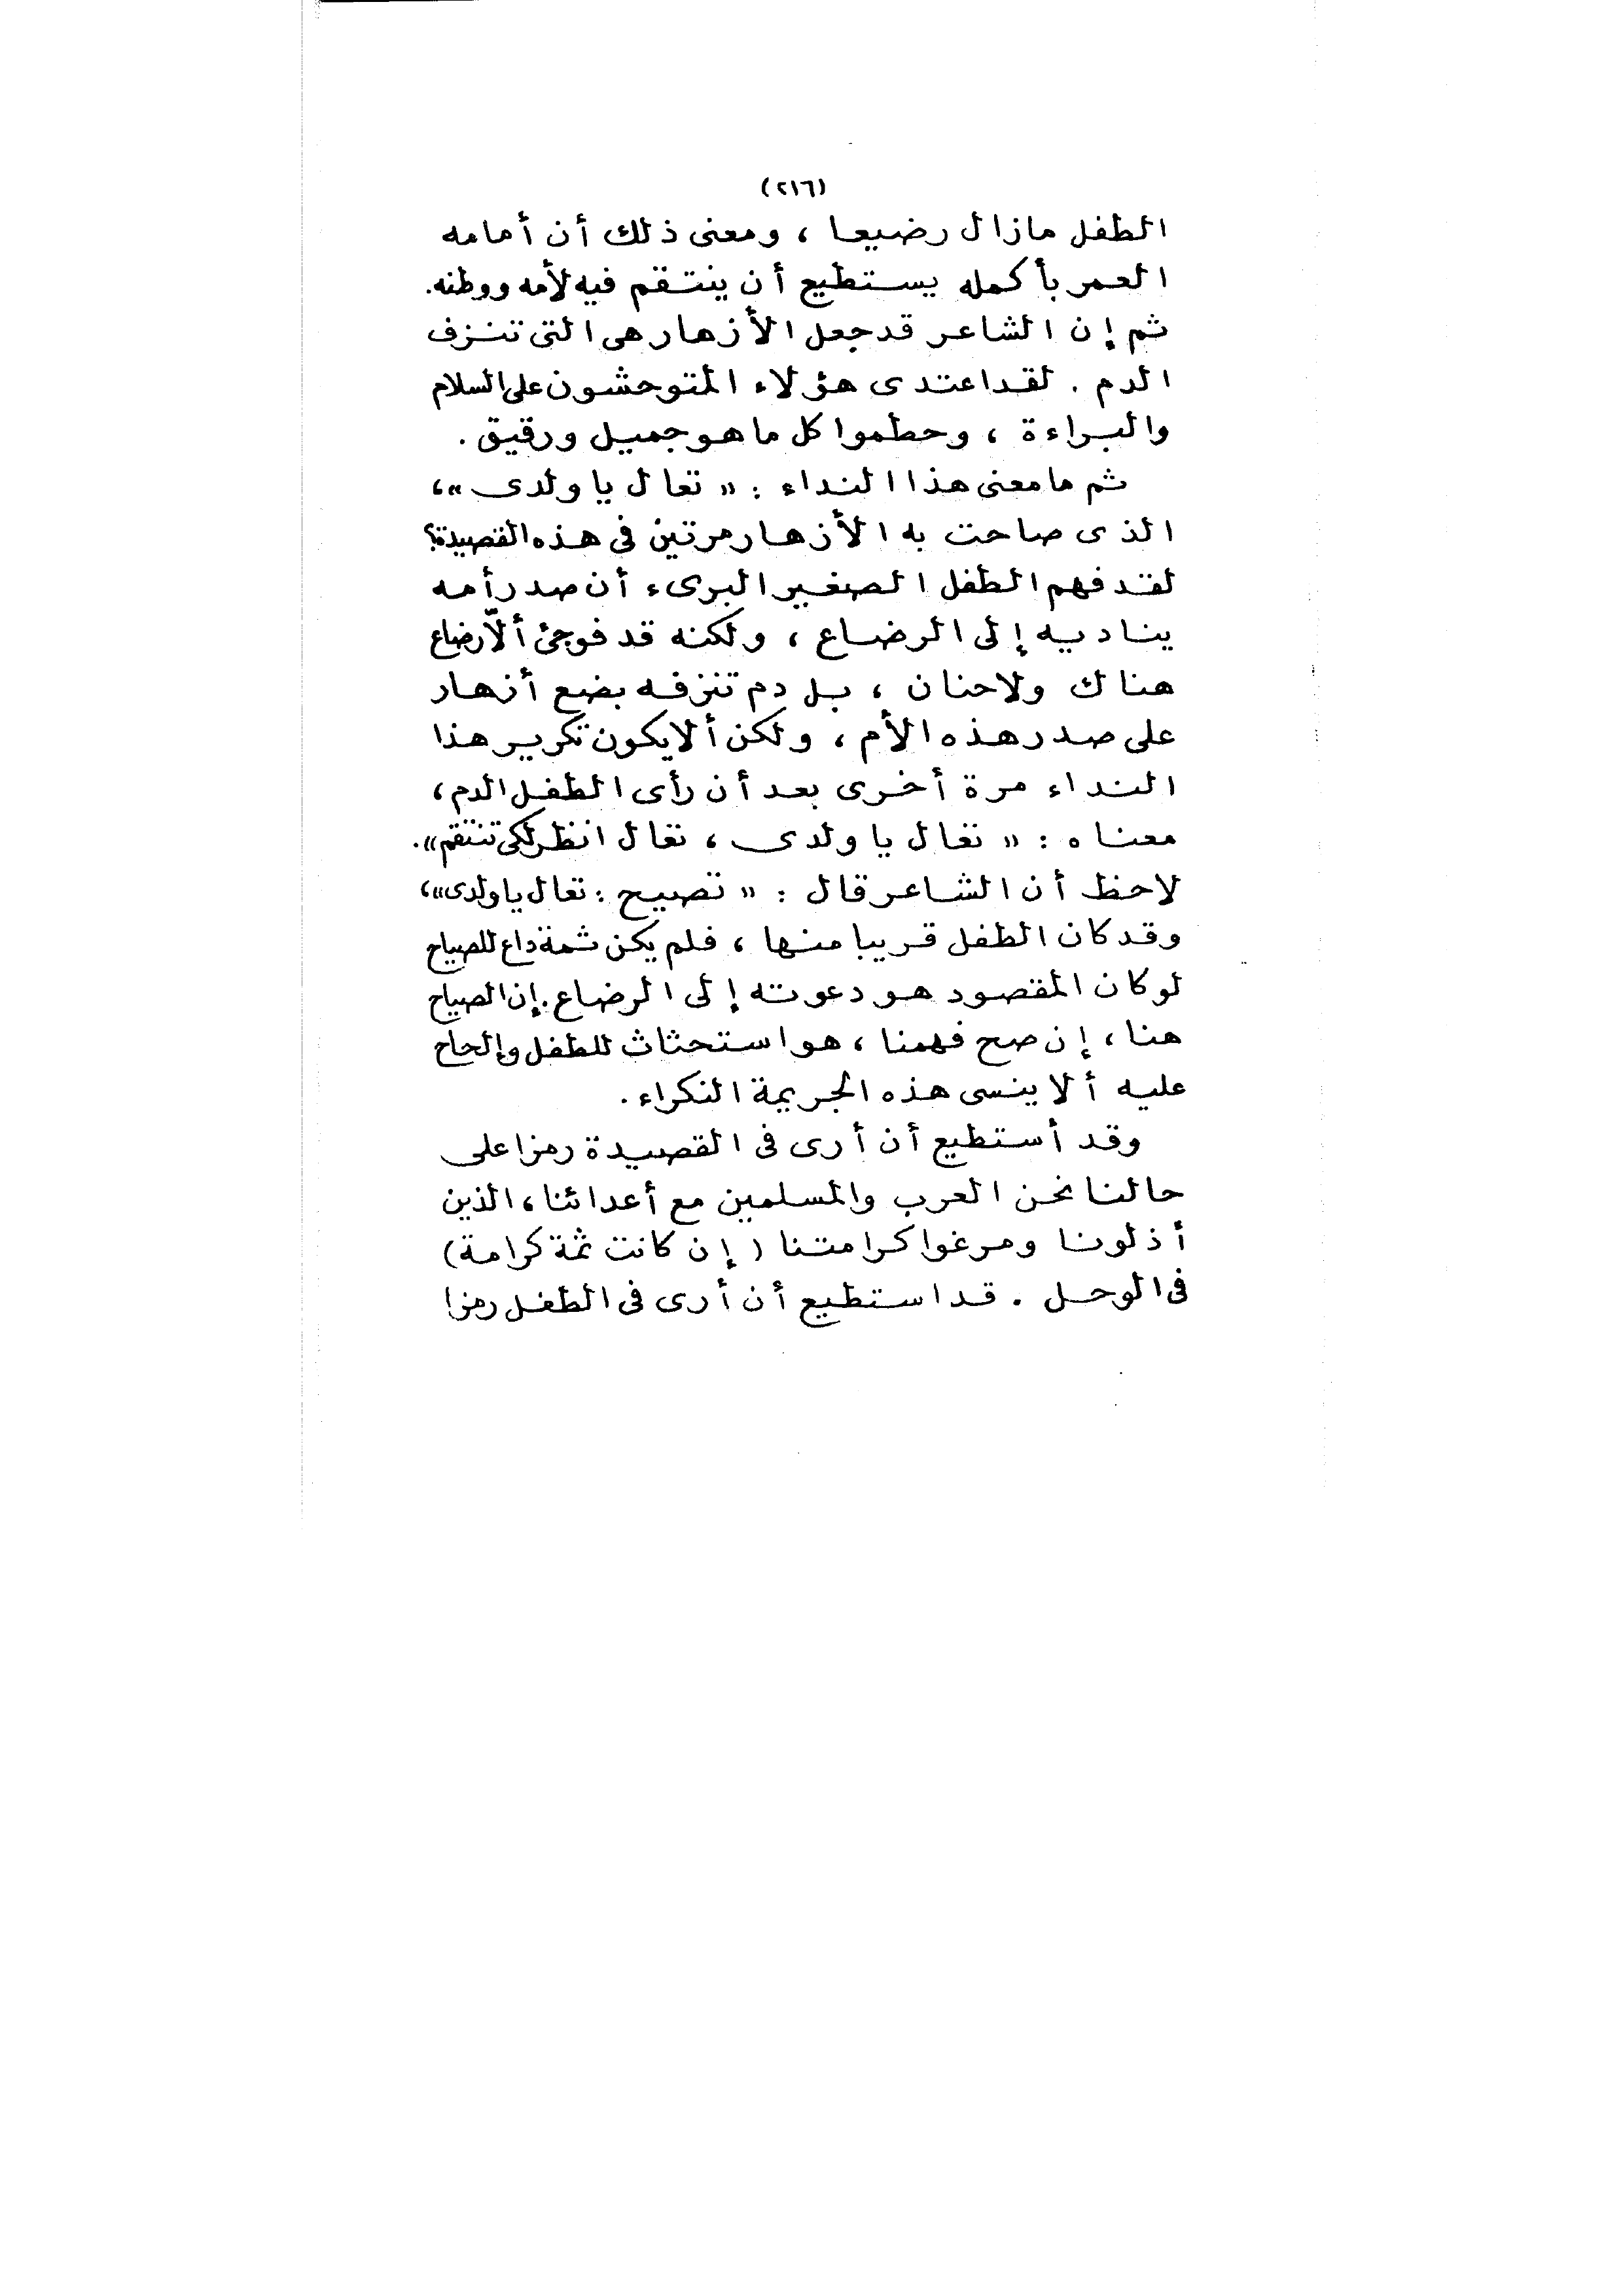 (٢١٦)
الطفل مازال رضيعا ، ومعنى ذلك أن أمامه
العمر بأكمله يستطيع أن ينتقم فيه لأمه ووطنه.
ثم إن الشاعر قد جعل الأزهار هى التى تنزف
الدم . لقد اعتدى هؤلاء المتوحشون على السلام
والبراءة ، وحطموا كل ما هو جميل ورقيق .
ثم ما معنى هذا النداء : « تعال يا ولدى »،
الذى صاحت به الأزهار مرتين فى هذه القصيدة؟
لقد فهم الطفل الصغير البرىء أن صدر أمه
يناديه إلى الرضاع ، ولكنه قد فوجئ ألّا رضاع
هناك ولا حنان ، بل دم تنزفه بضع أزهار
على صدر هذه الأم ، ولكن ألا يكون تكرير هذا
النداء مرة أخرى بعد أن رأى الطفل الدم ،
معناه : « تعال يا ولدى ، تعال انظر لكى تنتقم ».
لاحظ أن الشاعر قال : « تصيح : تعال يا ولدى »،
وقد كان الطفل قريبا منها ، فلم يكن ثمة داع للصياح
لو كان المقصود هو دعوته إلى الرضاع . إن الصياح
هنا ، إن صح فهمنا ، هو استحثاث للطفل وإلحاح
عليه ألا ينسى هذه الجريمة النكراء .
وقد أستطيع أن أرى فى القصيدة رمزا على
حالنا نحن العرب والمسلمين مع أعدائنا ، الذين
أذلونا ومرغوا كرامتنا ( إن كانت ثمة كرامة )
فى الوحل . قد استطيع أن أرى فى الطفل رمزا